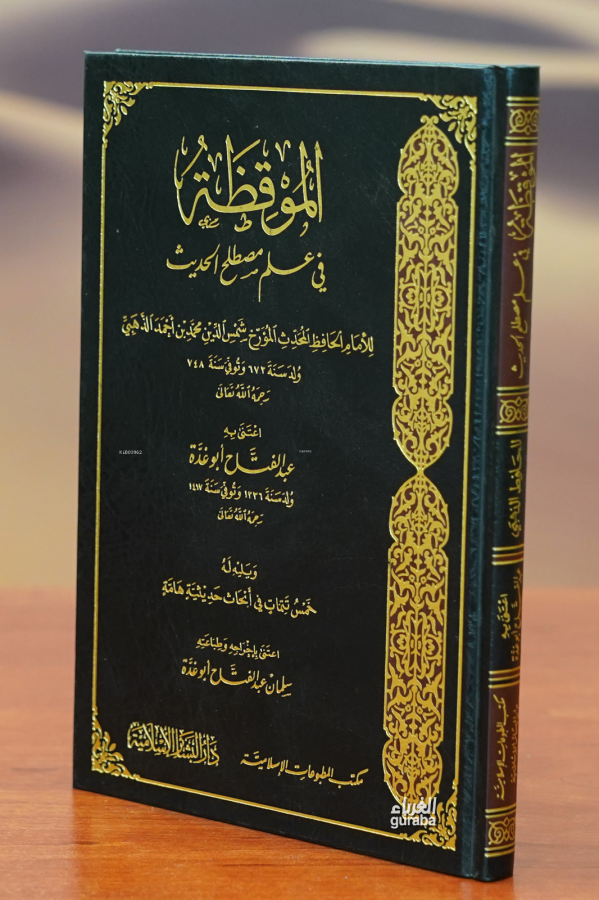 المُوقِظَةُ
في علم مصطلح الحديث
للإمام الحافظ المحدث المؤرخ شمس الدين محمد بن أحمد الذهبي
ولد سنة ٦٧٣ وتوفي سنة ٧٤٨
رحمه الله تعالى
اعتنى به
عبد الفتاح أبو غدة
ولد سنة ١٣٣٦ وتوفي سنة ١٤١٧
رحمه الله تعالى
ويليه له
خمس تتمات في أبحاث حديثية هامة
اعتنى بإخراجه وطباعته
سلمان عبد الفتاح أبو غدة
مكتب المطبوعات الإسلامية
دار البشائر الإسلامية
الموقظة
في علم مصطلح الحديث
للحافظ الذهبي
اعتنى به
عبد الفتاح أبو غدة
مكتب المطبوعات الإسلامية
الغرباء
guraba